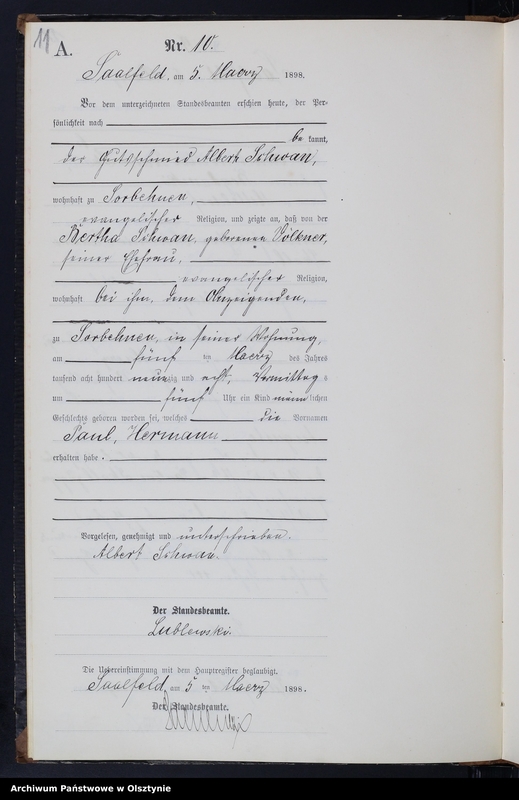 11
A.
Nr. 10.
Saalfeld, am 5. Maerz 1898.
Vor dem unterzeichneten Standesbeamten erschien heute, der Per-
sönlichkeit nach
bekannt,
der Gutsschmied Albert Schwan,
wohnhaft zu Sorbehnen,
evangelischer Religion, und zeigte an, daß von der
Bertha Schwan, geborenen Völkner,
seiner Ehefrau,
evangelischer Religion,
wohnhaft bei ihm, dem Anzeigenden,
zu Sorbehnen, in seiner Wohnung,
am fünf ten Maerz des Jahres
tausend acht hundert neunzig und acht, Vormittags
um fünf Uhr ein Kind männlichen
Geschlechts geboren worden sei, welches die Vornamen
Paul, Hermann
erhalten habe.
Vorgelesen, genehmigt und unterschrieben.
Albert Schwan.
Der Standesbeamte.
Lublewski.
Die Uebereinstimmung mit dem Hauptregister beglaubigt.
Saalfeld, am 5 ten Maerz 1898.
Der Standesbeamte.
Archiwum Państwowe w Olsztynie